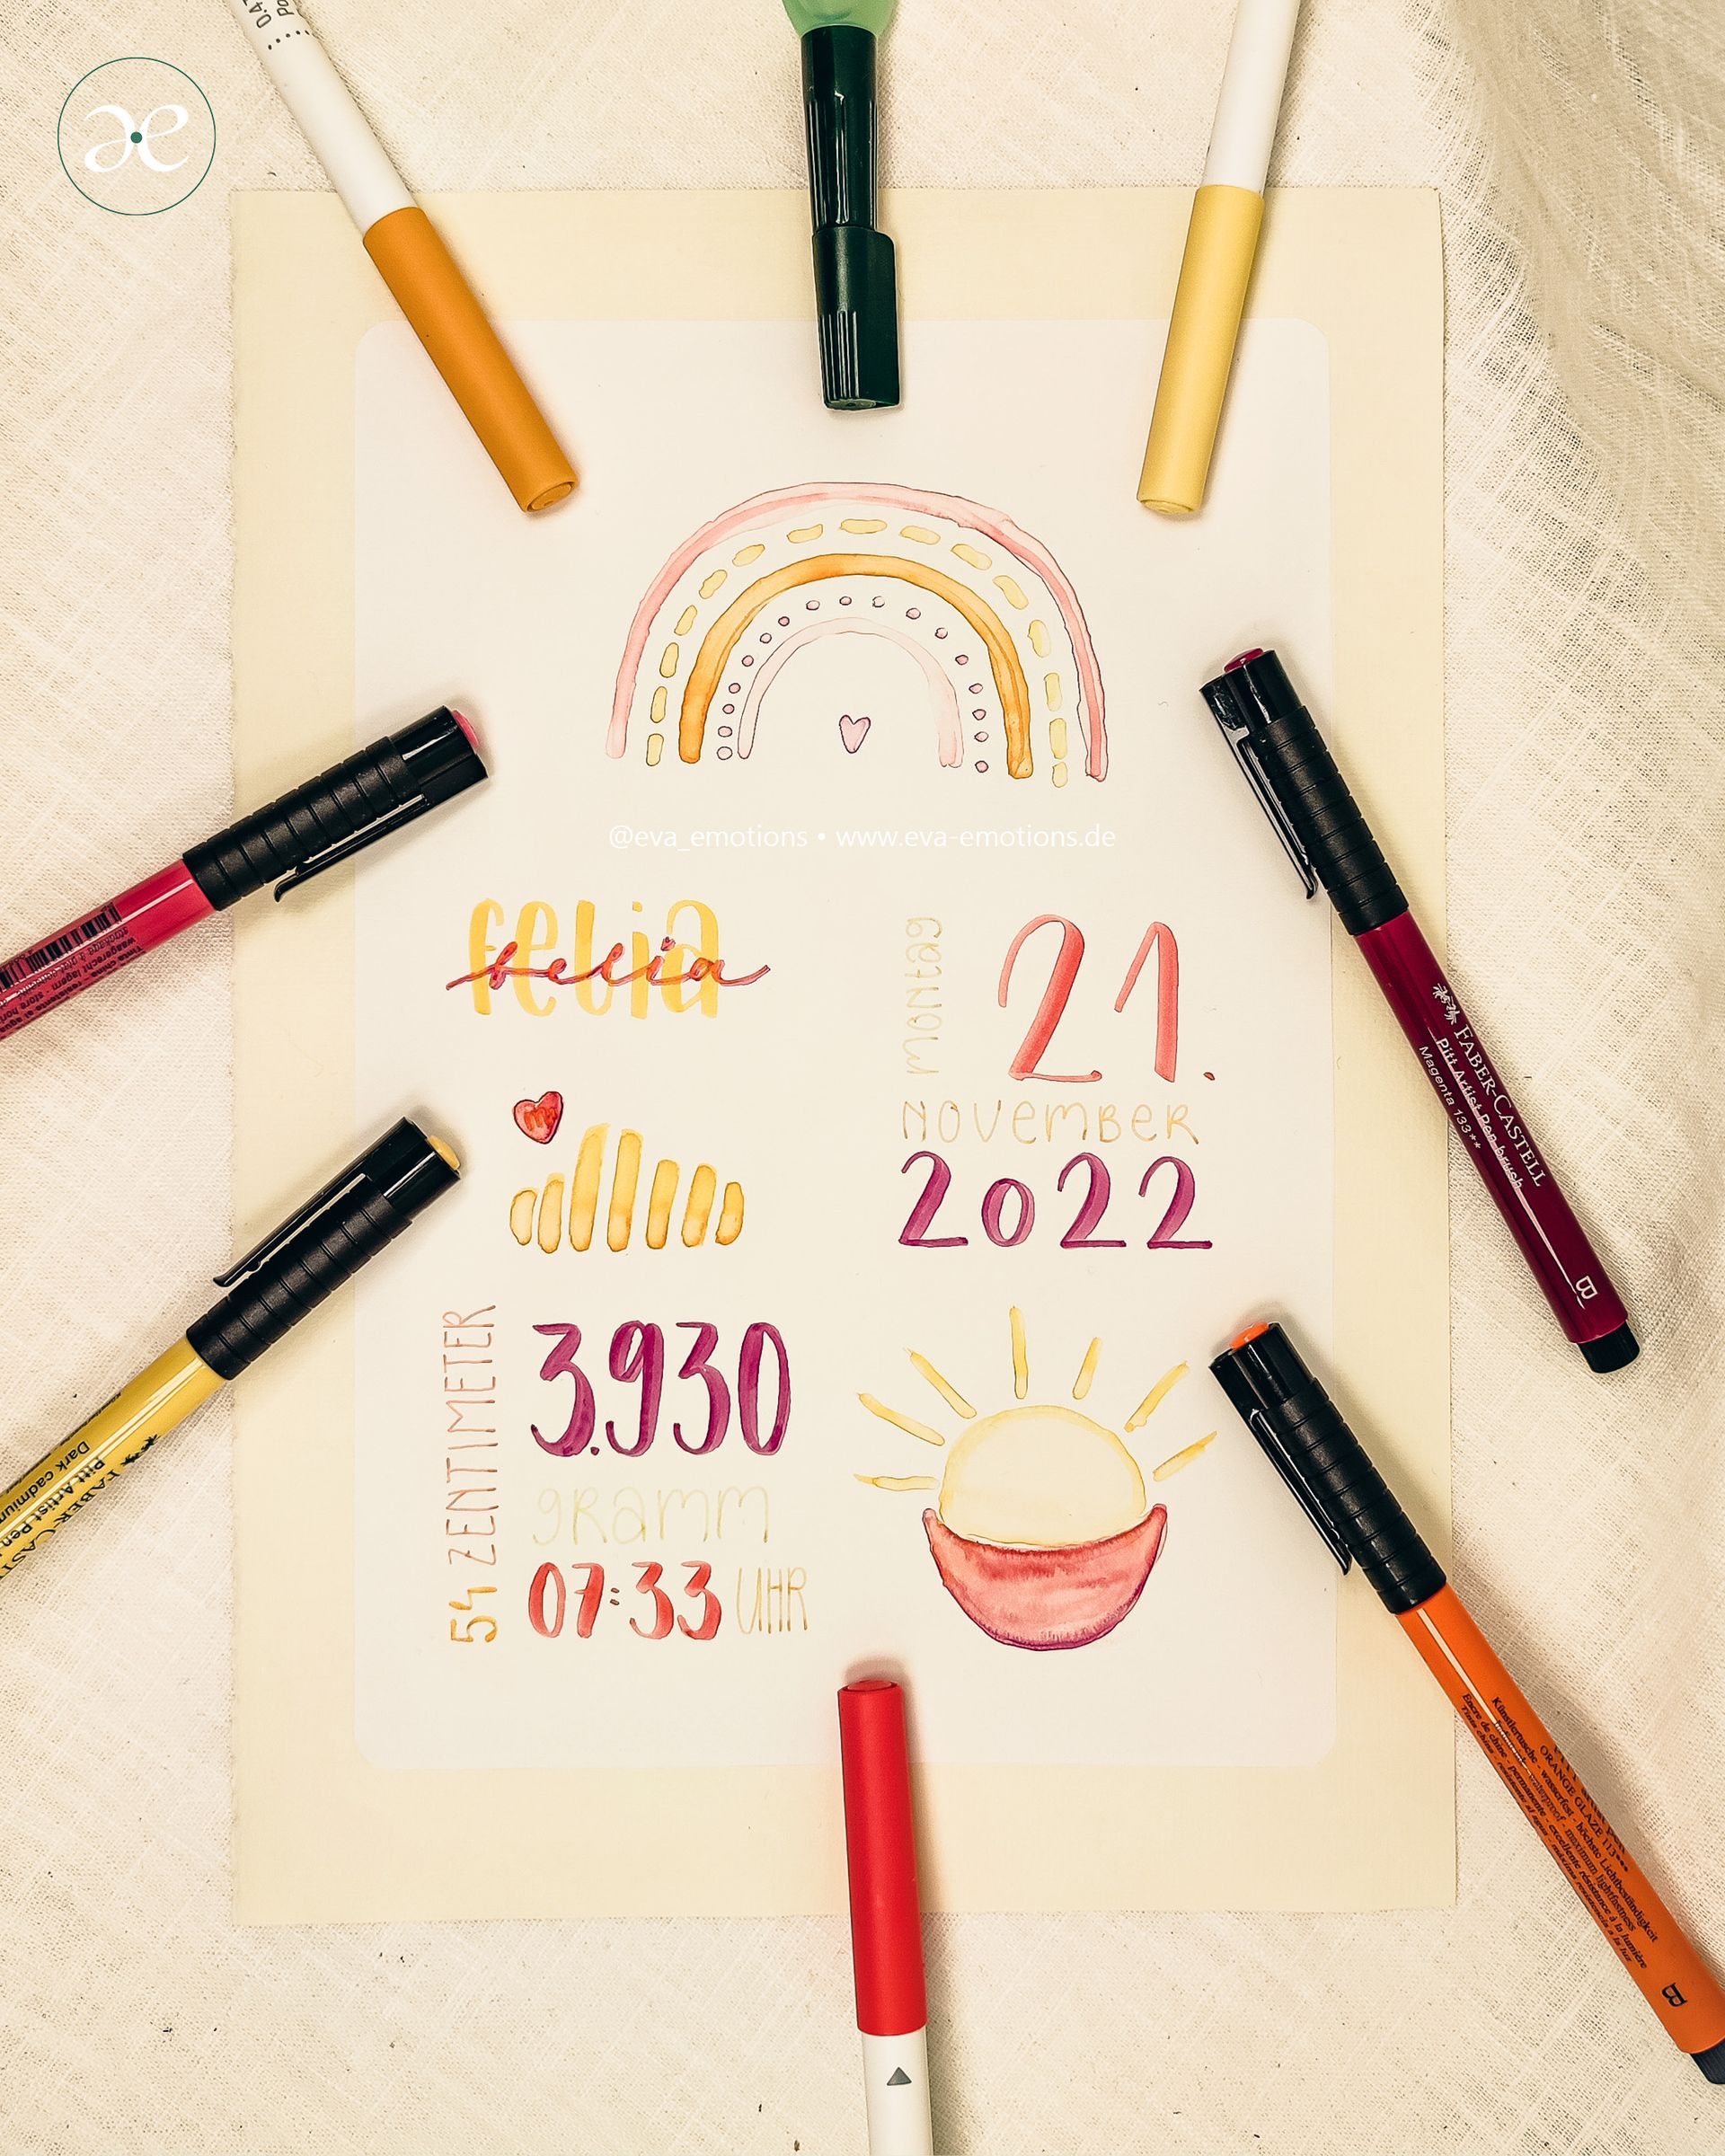 0.47
æ
@eva_emotions • www.eva-emotions.de
felia
felia
montag
21.
NOVEMBER
2022
54 ZENTIMETER
3.930
gramm
07:33 UHR
FABER-CASTELL
Pitt Artist Pen brush
Magenta 133**
B
Dark cadmium
Pitt Artist Pen
FABER-CAST
ORANGE GLAZE 113***
Künstlertusche - wasserfest - höchste Lichtbeständigkeit
B